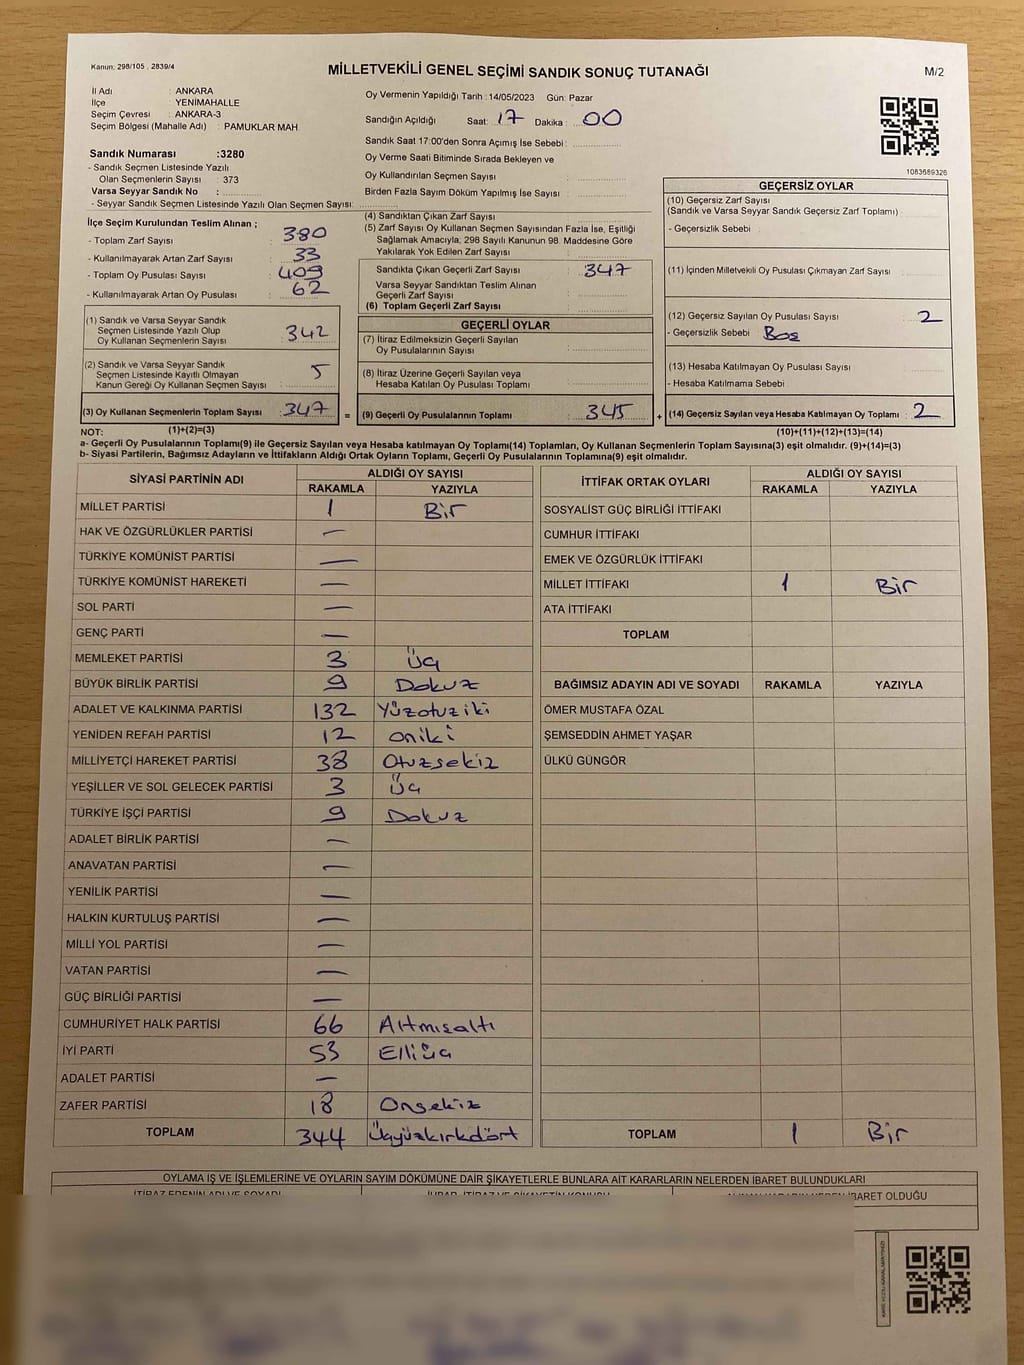 Kanun: 298/105 , 2839/4
MİLLETVEKİLİ GENEL SEÇİMİ SANDIK SONUÇ TUTANAĞI
M/2
İl Adı : ANKARA
İlçe : YENİMAHALLE
Seçim Çevresi : ANKARA-3
Seçim Bölgesi (Mahalle Adı) : PAMUKLAR MAH
Sandık Numarası :3280
- Sandık Seçmen Listesinde Yazılı
Olan Seçmenlerin Sayısı : 373
Varsa Seyyar Sandık No :
- Seyyar Sandık Seçmen Listesinde Yazılı Olan Seçmen Sayısı:
Oy Vermenin Yapıldığı Tarih : 14/05/2023 Gün: Pazar
Sandığın Açıldığı Saat: 17 Dakika : 00
Sandık Saat 17:00'den Sonra Açımış İse Sebebi :
Oy Verme Saati Bitiminde Sırada Bekleyen ve
Oy Kullandırılan Seçmen Sayısı :
Birden Fazla Sayım Döküm Yapılmış İse Sayısı :
1083689326
İlçe Seçim Kurulundan Teslim Alınan ;
- Toplam Zarf Sayısı : 380
- Kullanılmayarak Artan Zarf Sayısı : 33
- Toplam Oy Pusulası Sayısı : 409
- Kullanılmayarak Artan Oy Pusulası : 62
(1) Sandık ve Varsa Seyyar Sandık
Seçmen Listesinde Yazılı Olup
Oy Kullanan Seçmenlerin Sayısı : 342
(2) Sandık ve Varsa Seyyar Sandık
Seçmen Listesinde Kayıtlı Olmayan
Kanun Gereği Oy Kullanan Seçmen Sayısı : 5
(3) Oy Kullanan Seçmenlerin Toplam Sayısı : 347 =
(4) Sandıktan Çıkan Zarf Sayısı :
(5) Zarf Sayısı Oy Kullanan Seçmen Sayısından Fazla İse, Eşitliği
Sağlamak Amacıyla; 298 Sayılı Kanunun 98. Maddesine Göre
Yakılarak Yok Edilen Zarf Sayısı :
Sandıkta Çıkan Geçerli Zarf Sayısı : 347
Varsa Seyyar Sandıktan Teslim Alınan
Geçerli Zarf Sayısı :
(6) Toplam Geçerli Zarf Sayısı :
GEÇERLİ OYLAR
(7) İtiraz Edilmeksizin Geçerli Sayılan
Oy Pusulalarının Sayısı :
(8) İtiraz Üzerine Geçerli Sayılan veya
Hesaba Katılan Oy Pusulası Toplamı :
(9) Geçerli Oy Pusulalarının Toplamı : 345 +
GEÇERSİZ OYLAR
(10) Geçersiz Zarf Sayısı
(Sandık ve Varsa Seyyar Sandık Geçersiz Zarf Toplamı) :
- Geçersizlik Sebebi :
(11) İçinden Milletvekili Oy Pusulası Çıkmayan Zarf Sayısı :
(12) Geçersiz Sayılan Oy Pusulası Sayısı : 2
- Geçersizlik Sebebi : Boş
(13) Hesaba Katılmayan Oy Pusulası Sayısı :
- Hesaba Katılmama Sebebi :
(14) Geçersiz Sayılan veya Hesaba Katılmayan Oy Toplamı : 2
NOT: (1)+(2)=(3) (10)+(11)+(12)+(13)=(14)
a- Geçerli Oy Pusulalarının Toplamı(9) ile Geçersiz Sayılan veya Hesaba katılmayan Oy Toplamı(14) Toplamları, Oy Kullanan Seçmenlerin Toplam Sayısına(3) eşit olmalıdır. (9)+(14)=(3)
b- Siyasi Partilerin, Bağımsız Adayların ve İttifakların Aldığı Ortak Oyların Toplamı, Geçerli Oy Pusulalarının Toplamına(9) eşit olmalıdır.
SİYASİ PARTİNİN ADI ALDIĞI OY SAYISI
RAKAMLA YAZIYLA
MİLLET PARTİSİ 1 Bir
HAK VE ÖZGÜRLÜKLER PARTİSİ —
TÜRKİYE KOMÜNİST PARTİSİ —
TÜRKİYE KOMÜNİST HAREKETİ —
SOL PARTİ —
GENÇ PARTİ —
MEMLEKET PARTİSİ 3 Üç
BÜYÜK BİRLİK PARTİSİ 9 Dokuz
ADALET VE KALKINMA PARTİSİ 132 Yüzotuziki
YENİDEN REFAH PARTİSİ 12 oniki
MİLLİYETÇİ HAREKET PARTİSİ 38 Otuzsekiz
YEŞİLLER VE SOL GELECEK PARTİSİ 3 Üç
TÜRKİYE İŞÇİ PARTİSİ 9 Dokuz
ADALET BİRLİK PARTİSİ —
ANAVATAN PARTİSİ —
YENİLİK PARTİSİ —
HALKIN KURTULUŞ PARTİSİ —
MİLLİ YOL PARTİSİ —
VATAN PARTİSİ —
GÜÇ BİRLİĞİ PARTİSİ —
CUMHURİYET HALK PARTİSİ 66 Altmışaltı
İYİ PARTİ 53 Elliüç
ADALET PARTİSİ —
ZAFER PARTİSİ 18 Onsekiz
TOPLAM 344 Üçyüzkırkdört
İTTİFAK ORTAK OYLARI ALDIĞI OY SAYISI
RAKAMLA YAZIYLA
SOSYALİST GÜÇ BİRLİĞİ İTTİFAKI
CUMHUR İTTİFAKI
EMEK VE ÖZGÜRLÜK İTTİFAKI
MİLLET İTTİFAKI 1 Bir
ATA İTTİFAKI
TOPLAM
BAĞIMSIZ ADAYIN ADI VE SOYADI RAKAMLA YAZIYLA
ÖMER MUSTAFA ÖZAL
ŞEMSEDDİN AHMET YAŞAR
ÜLKÜ GÜNGÖR
TOPLAM 1 Bir
OYLAMA İŞ VE İŞLEMLERİNE VE OYLARIN SAYIM DÖKÜMÜNE DAİR ŞİKAYETLERLE BUNLARA AİT KARARLARIN NELERDEN İBARET BULUNDUKLARI
İTİRAZ EDENİN ADI VE SOYADI
İBARET OLDUĞU